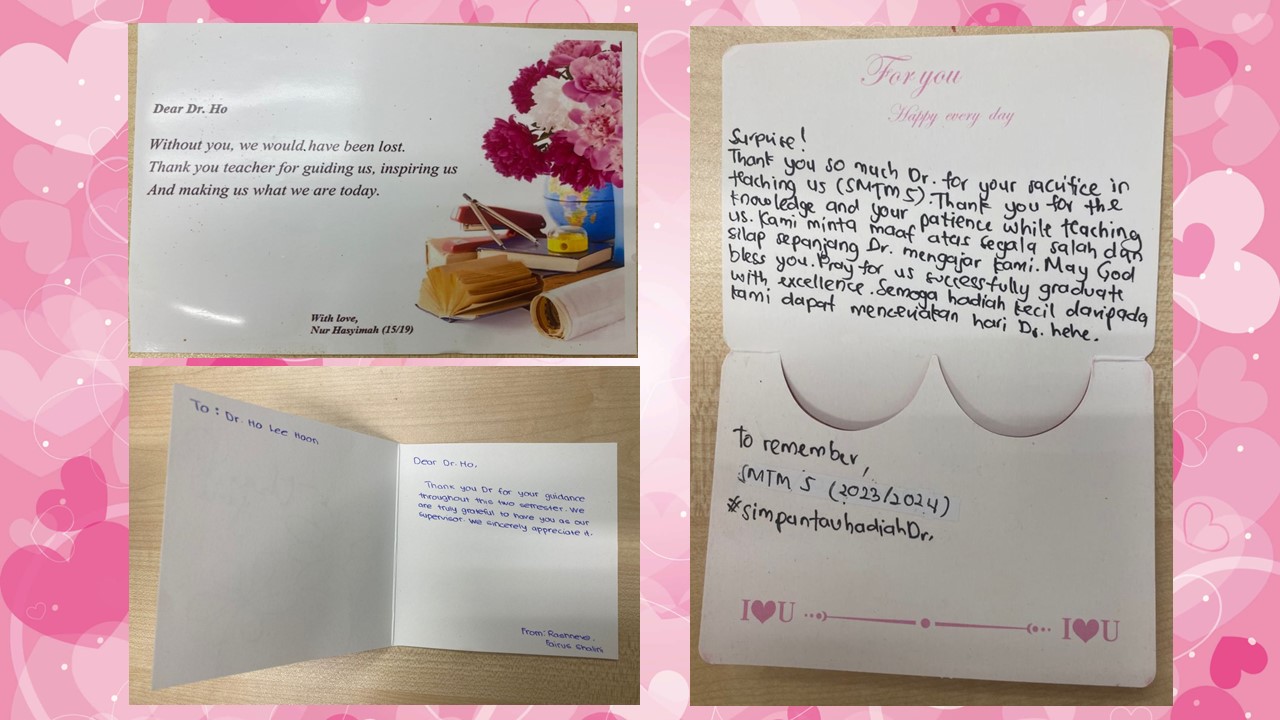 Dear Dr. Ho
Without you, we would.have been lost.
Thank you teacher for guiding us, inspiring us
And making us what we are today.
With love,
Nur Hasyimah (15/19)
To : Dr. Ho Lee Hoon
Dear Dr. Ho,
Thank you Dr for your guidance
throughout this two semester. We
are truly grateful to have you as our
supervisor. We sincerely appreciate it.
From: Rashneve.
Fairus Shalini
For you
Happy every day
Surprise!
Thank you so much Dr. for your sacrifice in
teaching us (SMTM 5). Thank you for the
knowledge and your patience while teaching
us. Kami minta maaf atas segala salah dan
silap sepanjang Dr. mengajar kami. May God
bless you. Pray for us successfully graduate
with excellence. Semoga hadiah kecil daripada
kami dapat menceriakan hari Dr. hehe.
To remember,
SMTM 5 (2023/2024)
#simpantauhadiahDr.
I♥U I♥U